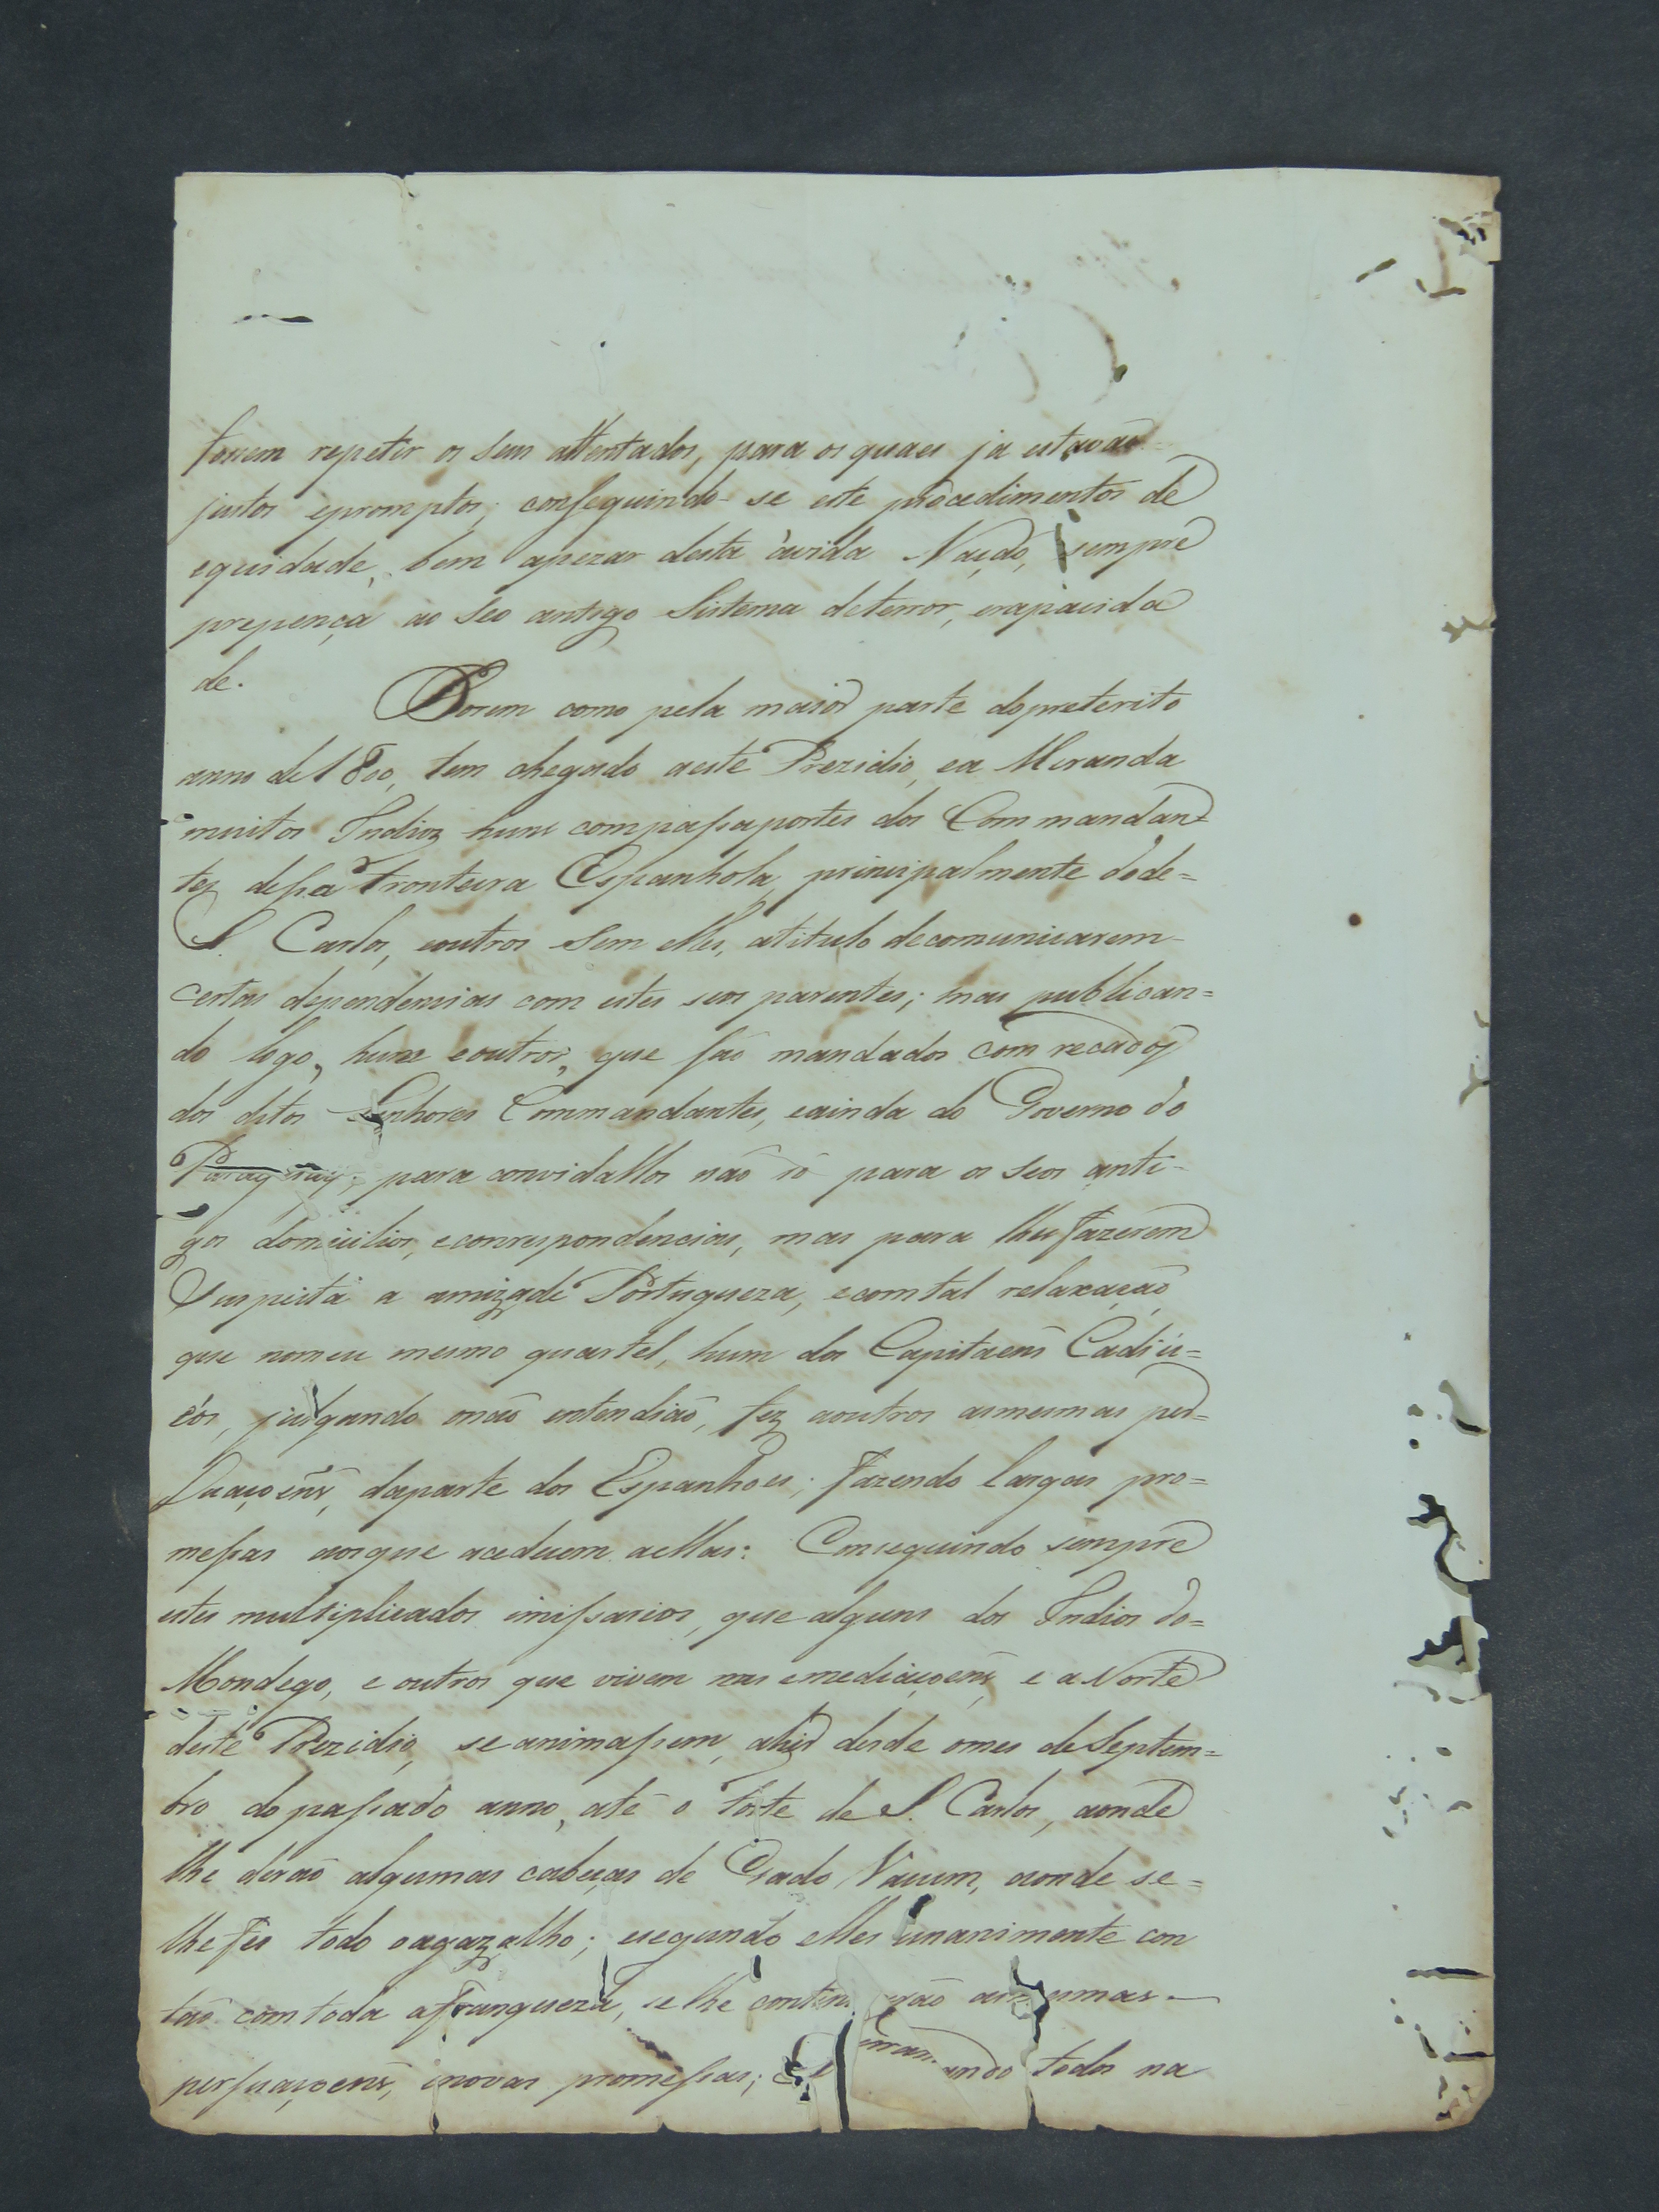 forem repetir os seus attentados, para os quaes ja estavaõ
justos epromptos; conseguindo-se este procedimentos de
equidade, bem apezar desta àvida Naçaõ, sempre
prepença ao seo antigo Sistema deterror, erapacida
de.
Porem como pela maior parte dopreterito
anno de 1800, tem chegado aeste Prezidio, ea Miranda
muitos Indioz huns compassaportes dos Commandan
tez dessa Fronteira Espanhola, principalmente dode=
S. Carlos, eoutros sem elles, atitulo decomunicarem
certas dependencias com estes seos parentes; mas publican=
do logo, huns eoutros, que saõ mandados com recados
dos ditos Senhores Commandantes, eainda do Governo do
Paraguay; para convidallos naõ só para os seos anti-
gos domicilios, ecorrespondencias, mas para lhesfazerem
suspeita a amizade Portugueza, ecomtal relaxaçaõ,
que nomeu mesmo quartel, hum dos Capitaens Cadiu=
éos, julgando onaõ entendiaõ, fez aoutros asmesmas per=
suaçoens, daparte dos Espanhoes; fazendo largas pro=
messas aosque acedecem aellas: Conseguindo sempre
estes multiplicados imissarios, que alguns dos Indios do=
Mondego, e outros que vivem nas emediaçoens e a Norte
deste Prezidio, se animassem, ahir desde omes de Septem=
bro do passado anno, até o Forte de S. Carlos, aonde
lhe deraõ algumas cabeças de Gado Vacum, aonde se=
lhe fes todo oagazalho; esegundo elles unanimente con
taõ com toda afranqueza, se lhe
persuaçoens, enovas promessas; todos na